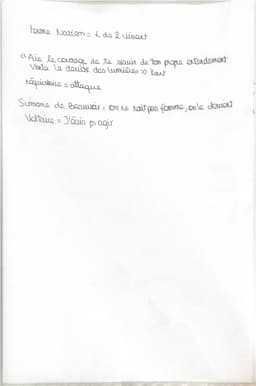 terme Nation = £ do 2 vivant
« Aie le courage de te servir de ton propre entendement
Voila la devise des lumières » Kant
réquisitoire = attaque
Simone de Beauvoir : on ne nait pas femme, on le devient
Voltaire = J'écris pr agir